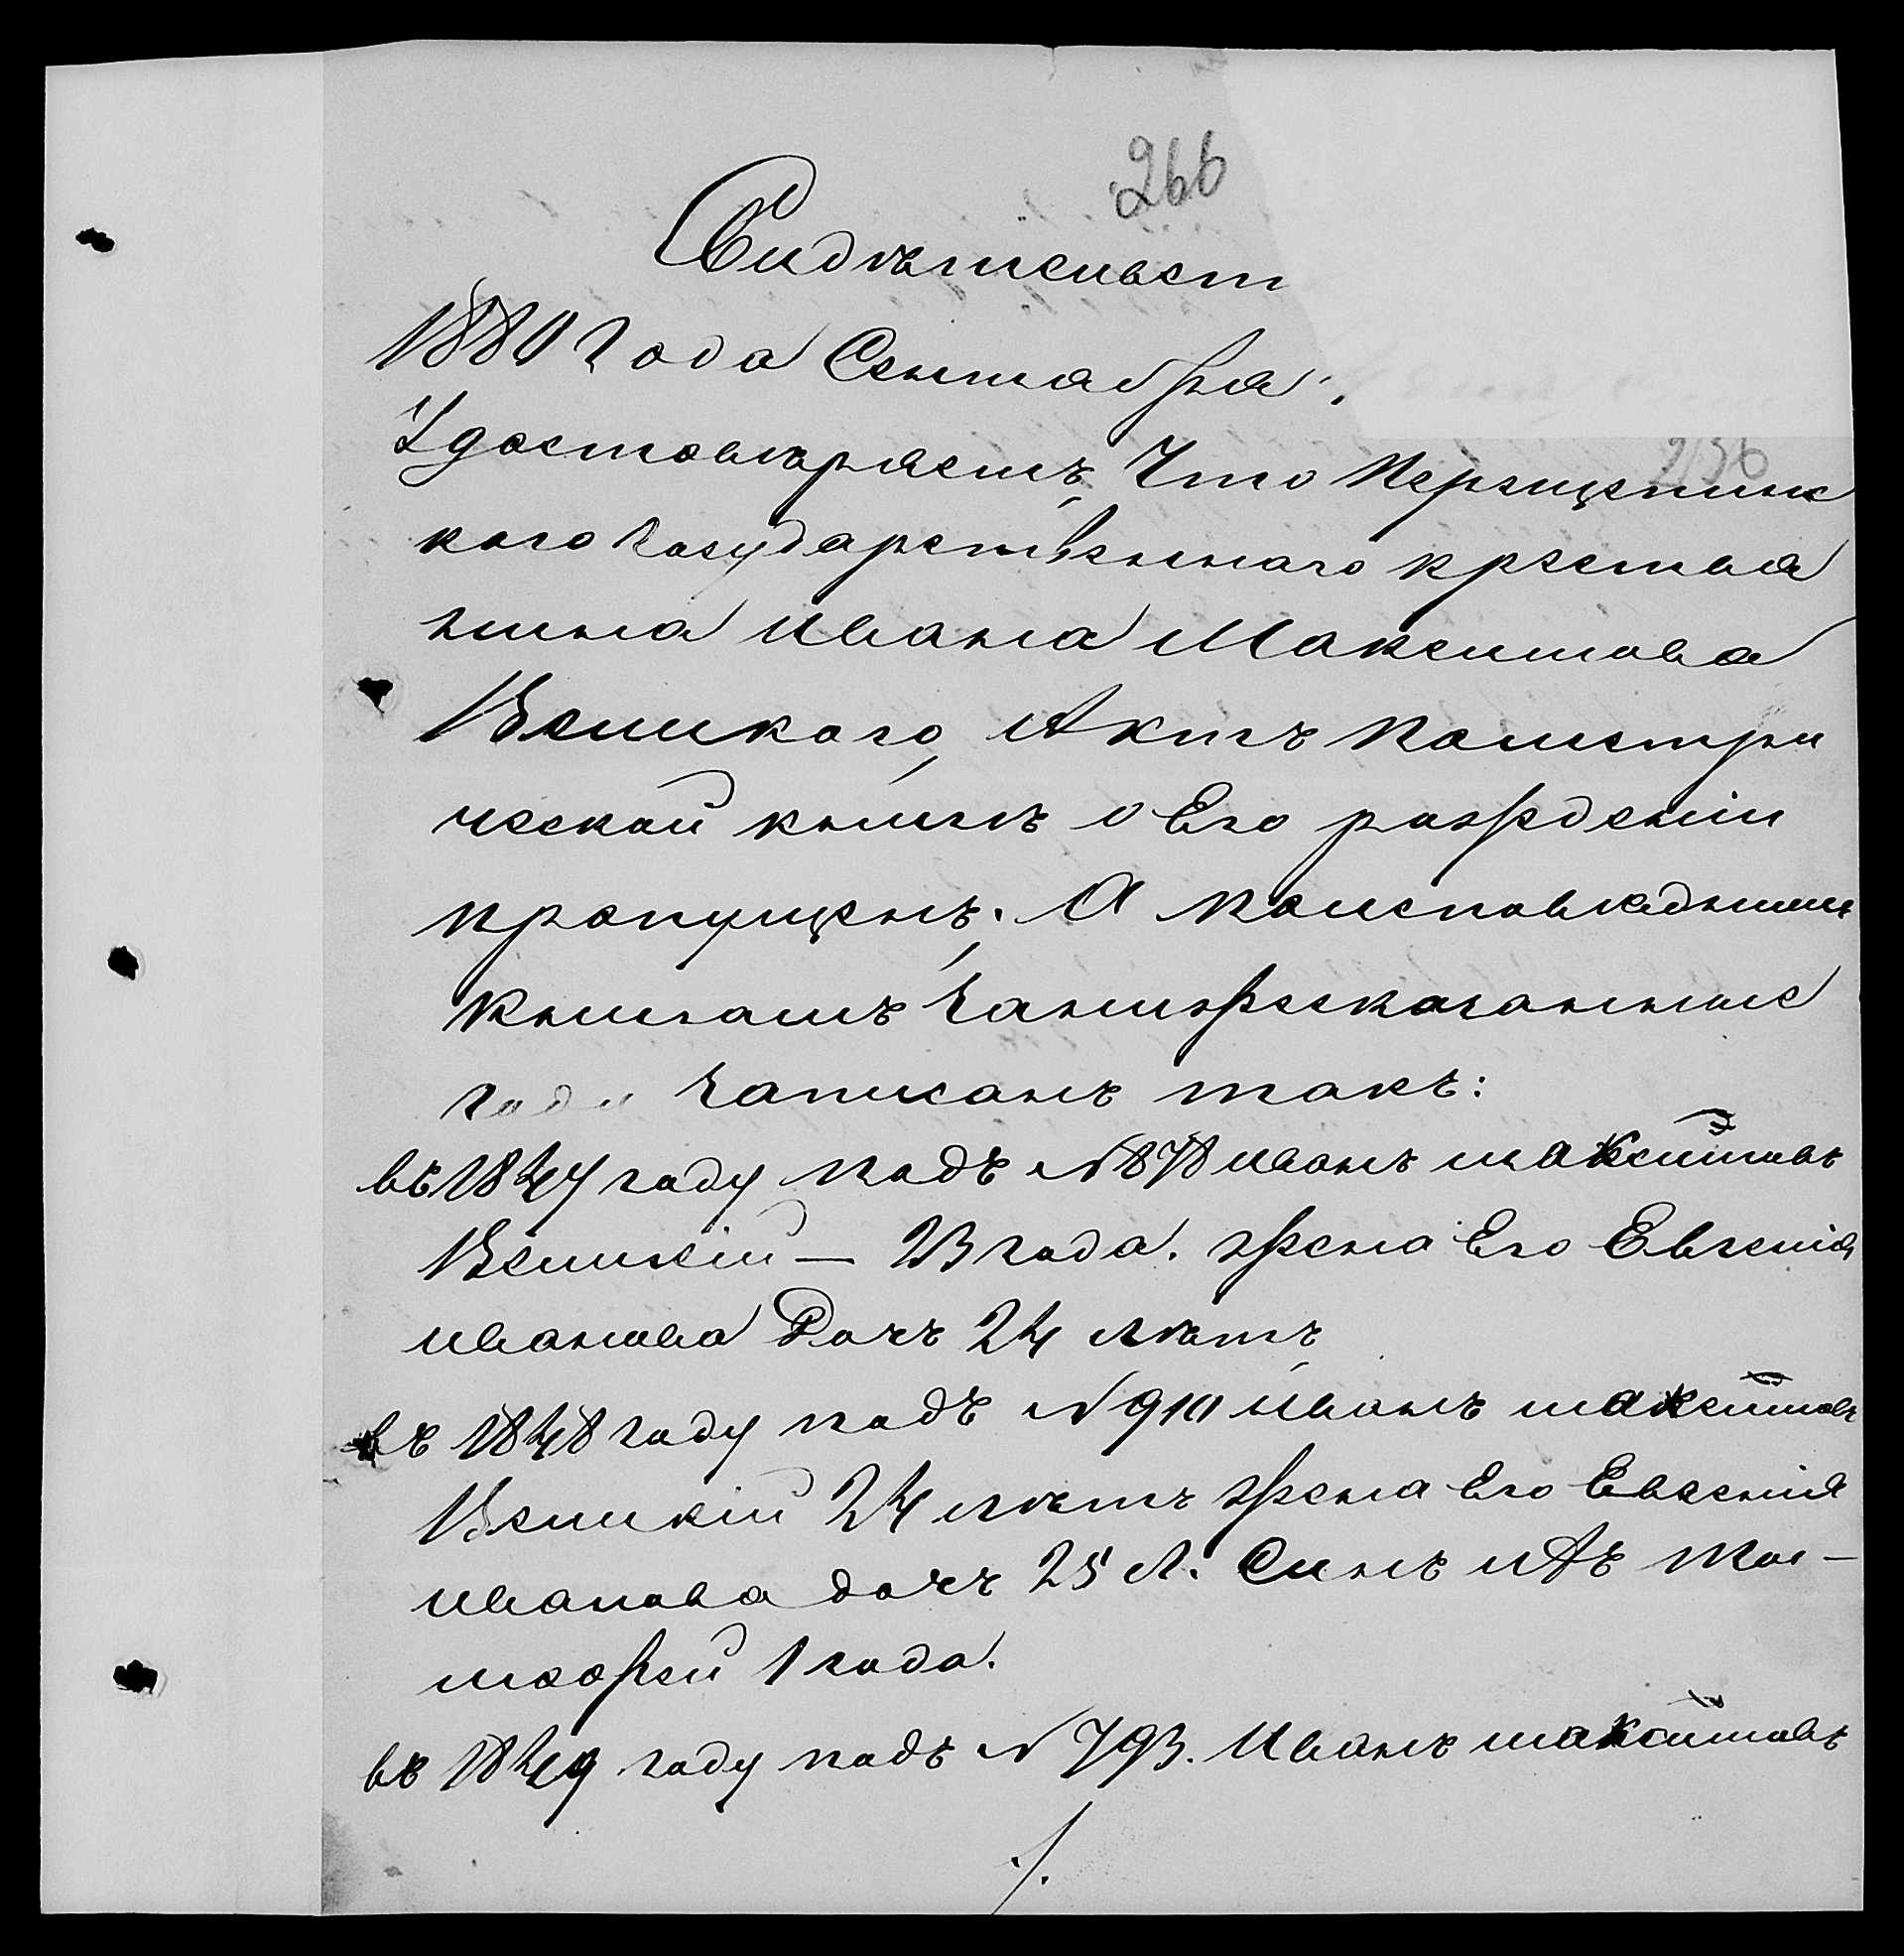 266
Свидѣтельст
1880 года Сентября
236
Удостовѣряетъ, Что Перещепинс
кого Государственнаго крестья
нина Ивана Максимова
Великого, Актъ пометри
ческой книгѣ о Его рождении
пропущенъ. А поисповѣднымъ
Книгамъ
года записанъ такъ:
въ 1847 году подъ N878 иванъ максимовъ
Великій — 23 года. жена Его Евгенія
иванова Дочь 24 лѣтъ
въ 1848 году подъ N 910 иванъ максимовъ
Великій 24 лѣтъ жена Его Евгенія
иванова дочь 25 л. Синъ ихъ Ти-
мофей 1 года.
въ 1849 году подъ N 793. Иванъ максимовъ
./.